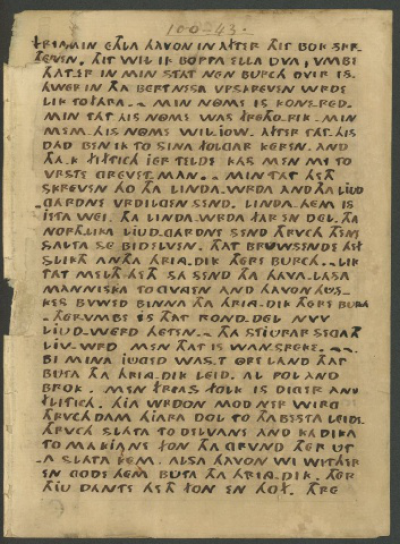 100-43.
FRIAMIN EÐLA HAVON IN AFTER ÐIT BOK SKR-
EVEN. ÐIT WIL IK BOPPA ELLA DVA, VMBE
ÐAT ER IN MIN STAT NEN BURCH OVIR IS.
HWERIN ÐA BERTNESA VPSKREVEN WRDE
LIK TO FARA. -. MIN NOME IS KONERED.
MIN TAT HIS NOME WAS FREÐO-RIK. MIN
MEM. HIS NOME WILJOW. AFTER TAT-HIS
DAD BEN IK TO SINA FOLGAR KEREN. AND
ÐA-K FIFTICH JER TELDE KAS MEN MI TO
VRSTE GREVETMAN. - MIN TAT HEÐ
SKREVEN HO ÐA LINDA-WRDA ANDÐA LIUD
GARDNE VRDILGEN SEND. LINDA-HEM IS
JETA WEI. ÐA LINDA-WRDA FAR EN DEL. ÐA
NORÐLIKA LIUD-GARDNE SEND ÐRVCH ÐENE
SALTA SE BIDELVEN. ÐAT BRUWSENDE HEF
SLIKÐ ANÐA HRING-DIK ÐERE BURCH. - LIK
TAT MELÐ HEÐ SA SEND ÐA HAVA-LASA
MANNISKA TO GVNGEN AND HAVON HUS-
KES BUWED BINNA ÐA HRING-DIK ÐERE BURCH
- ÐERVMBE IS ÐAT ROND-DEL NVV
LIUD-WERD HETEN. - ÐA STIURAR SEGAÐ
LIV-WRD MEN ÐAT IS WANSPREKE. -.-.
BI MINA IUGED WAS-T ORE LAND ÐAT
BUTA ÐA HRING-DIK LEID. AL POL AND
BROK. MEN FRIAS FOLK IS DIGER AND
FLITICH. HIA WRDON MOD NER WIRG
ÐRVCHDAM HIARA DOL TO ÐA BESTA LEIDE.
ÐRVCH SLATA TO DELVANE AND KADIKA
TO MAKIANE FON ÐA GRVND ÐER UT
-A SLATA KEM. ALSA HAVON WI WITHER
EN GODE HEM BUTA ÐA HRING-DIK. ÐER
ÐIU DANTE HEÐ FON EN HOF. ÐRE